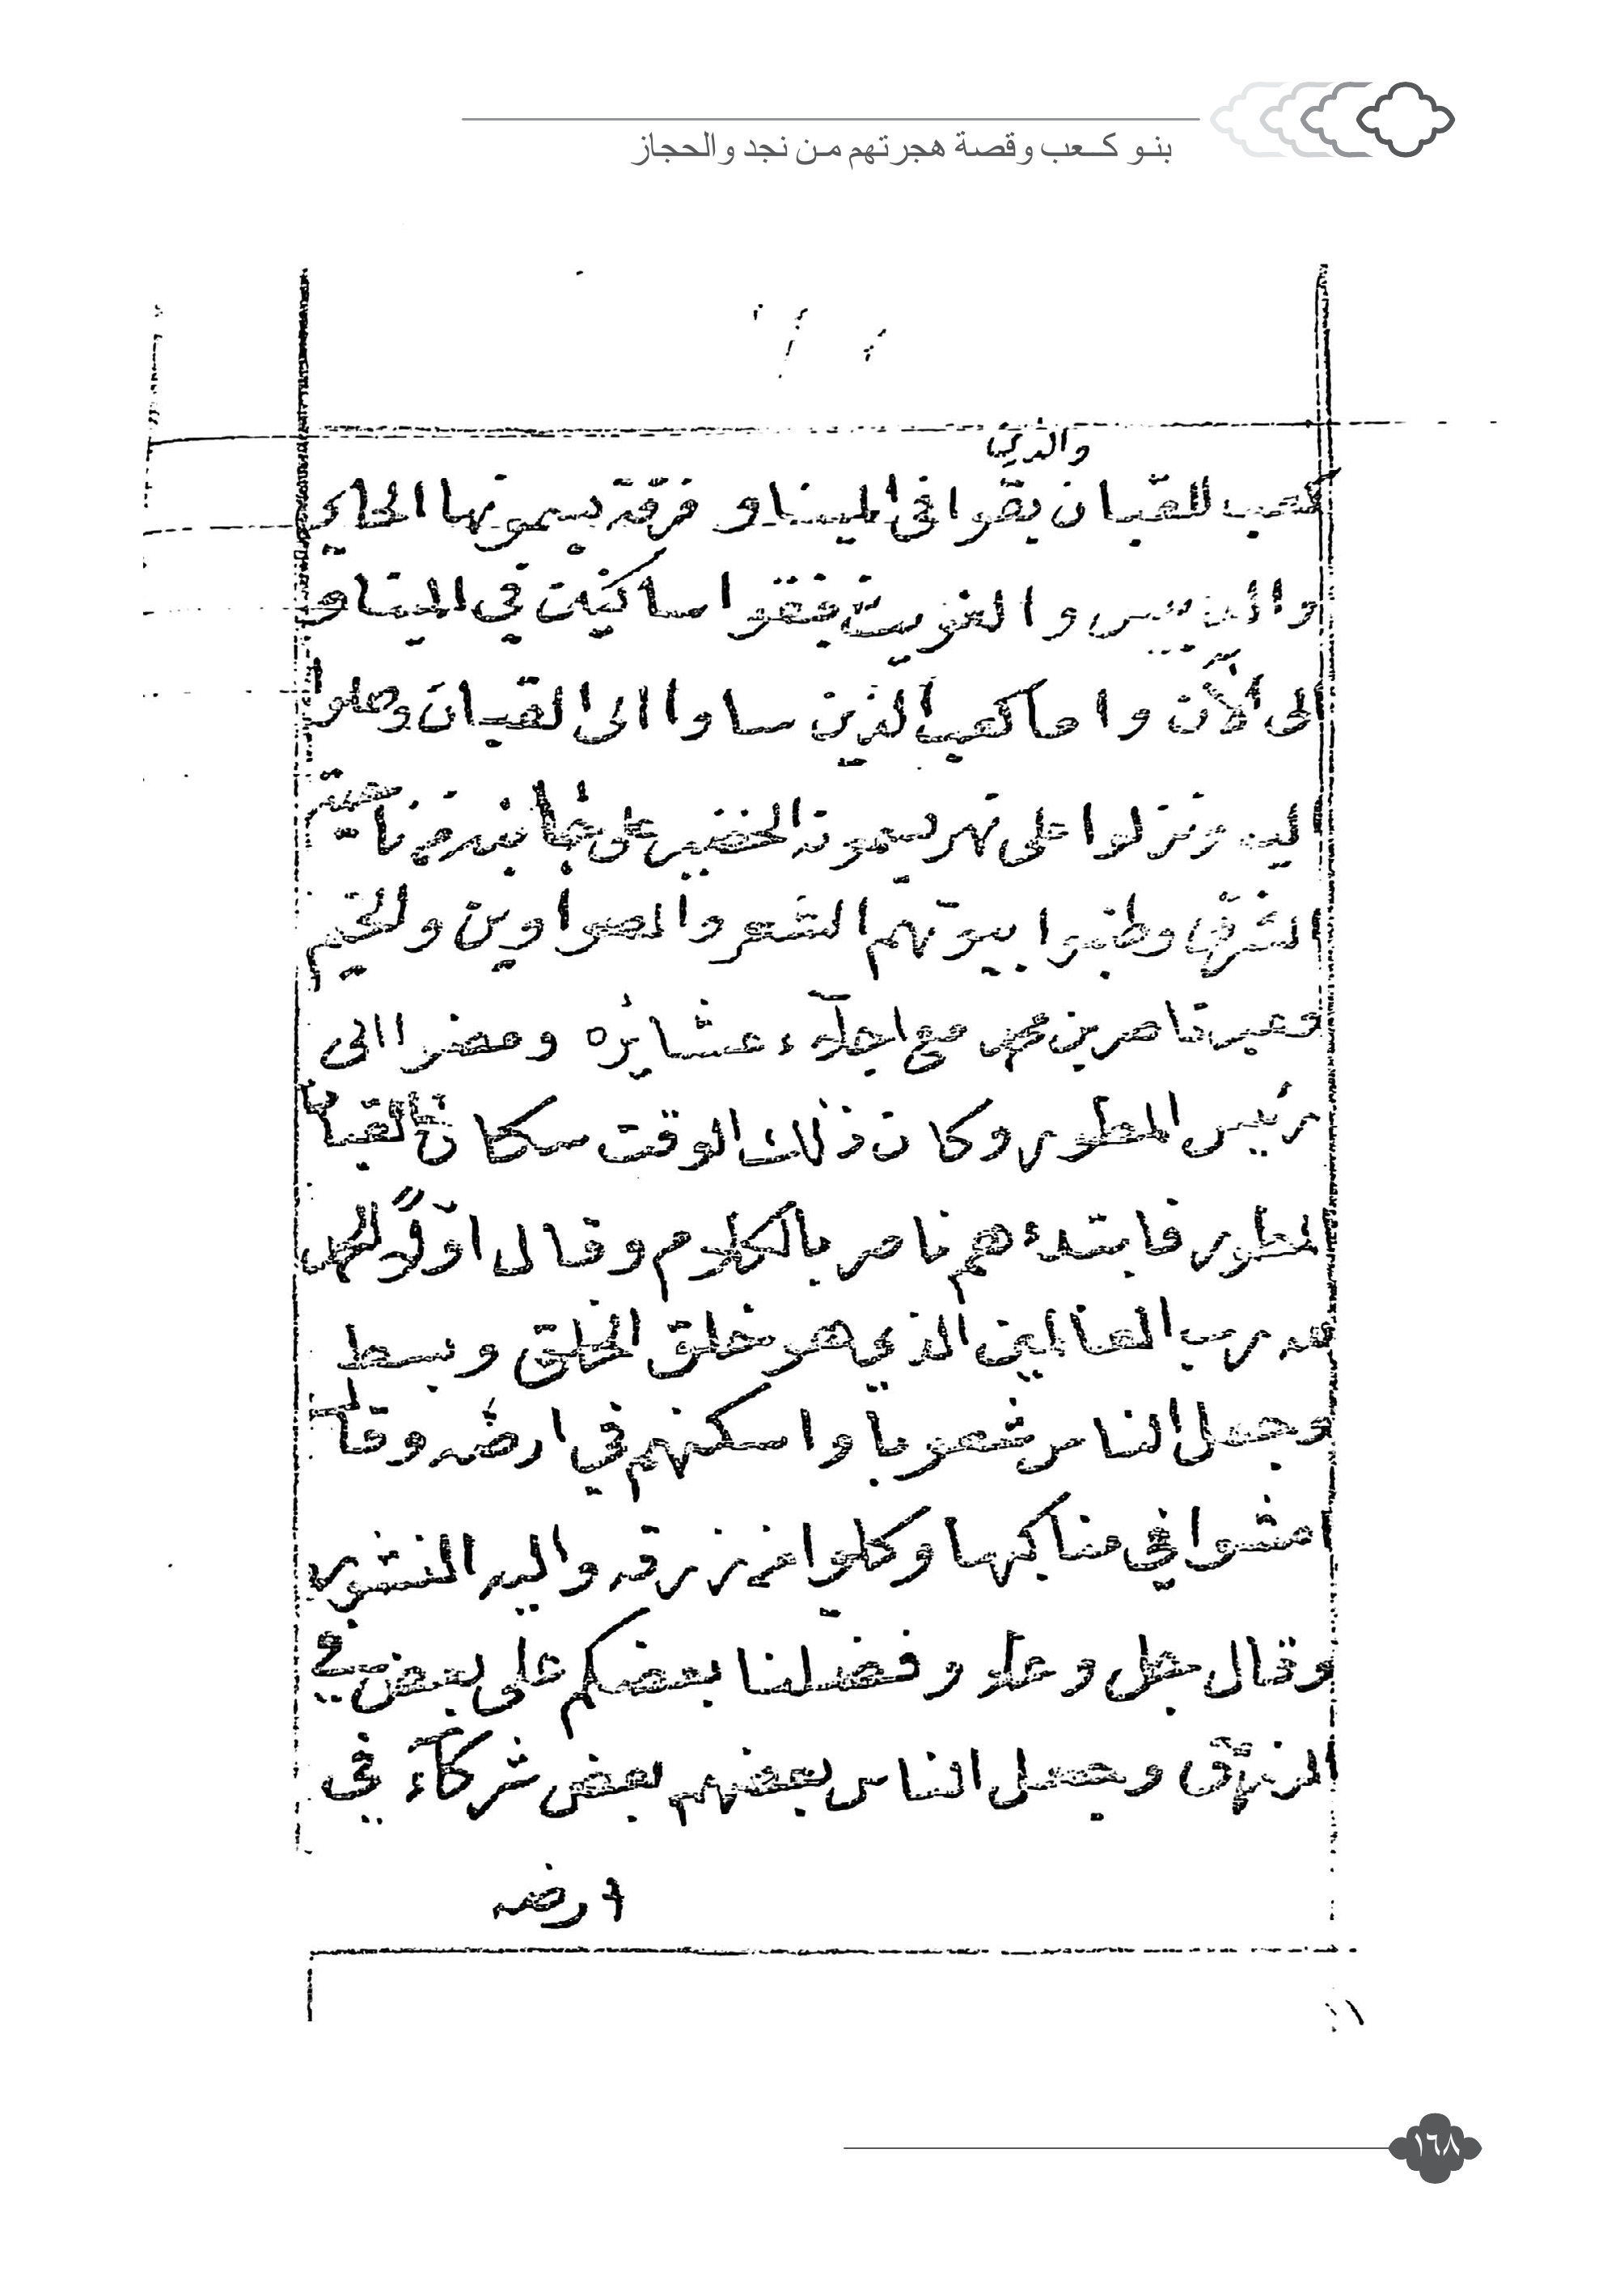 بنو كعب وقصة هجرتهم من نجد والحجاز
والذي
كعب للقبان بقوا في المينا و فرقة يسمونها الحاي
والدريس و الغزيت بقوا ساكنين في المينا و
الى الآن و اما كعب الذين ساوا الى القبان وصلوا
اليه ونزلوا على نهر يسمونه الخضير على جانبه من ناحية
الشرقي وطنبوا بيوتهم الشعر والصواوين والخيم
وعبر ناصر بن محمد مع اجلآء عشايره وحضرا الى
رئيس المطور وكان ذلك الوقت سكان القبان
المطور فابتدء هم ناصر بالكلام وقال اوّلاً الحمد
لله رب العالمين الذي هو خلق الخلق وبسط
وجعل الناس شعوباً واسكنهم في ارضه وقال
امشوا في مناكبها وكلوا من رزقه واليه النشور
وقال جل وعلا وفضلنا بعضكم على بعض في
الرزق وجعل الناس بعضهم بعض شركآء في
ارضه
١٦٨